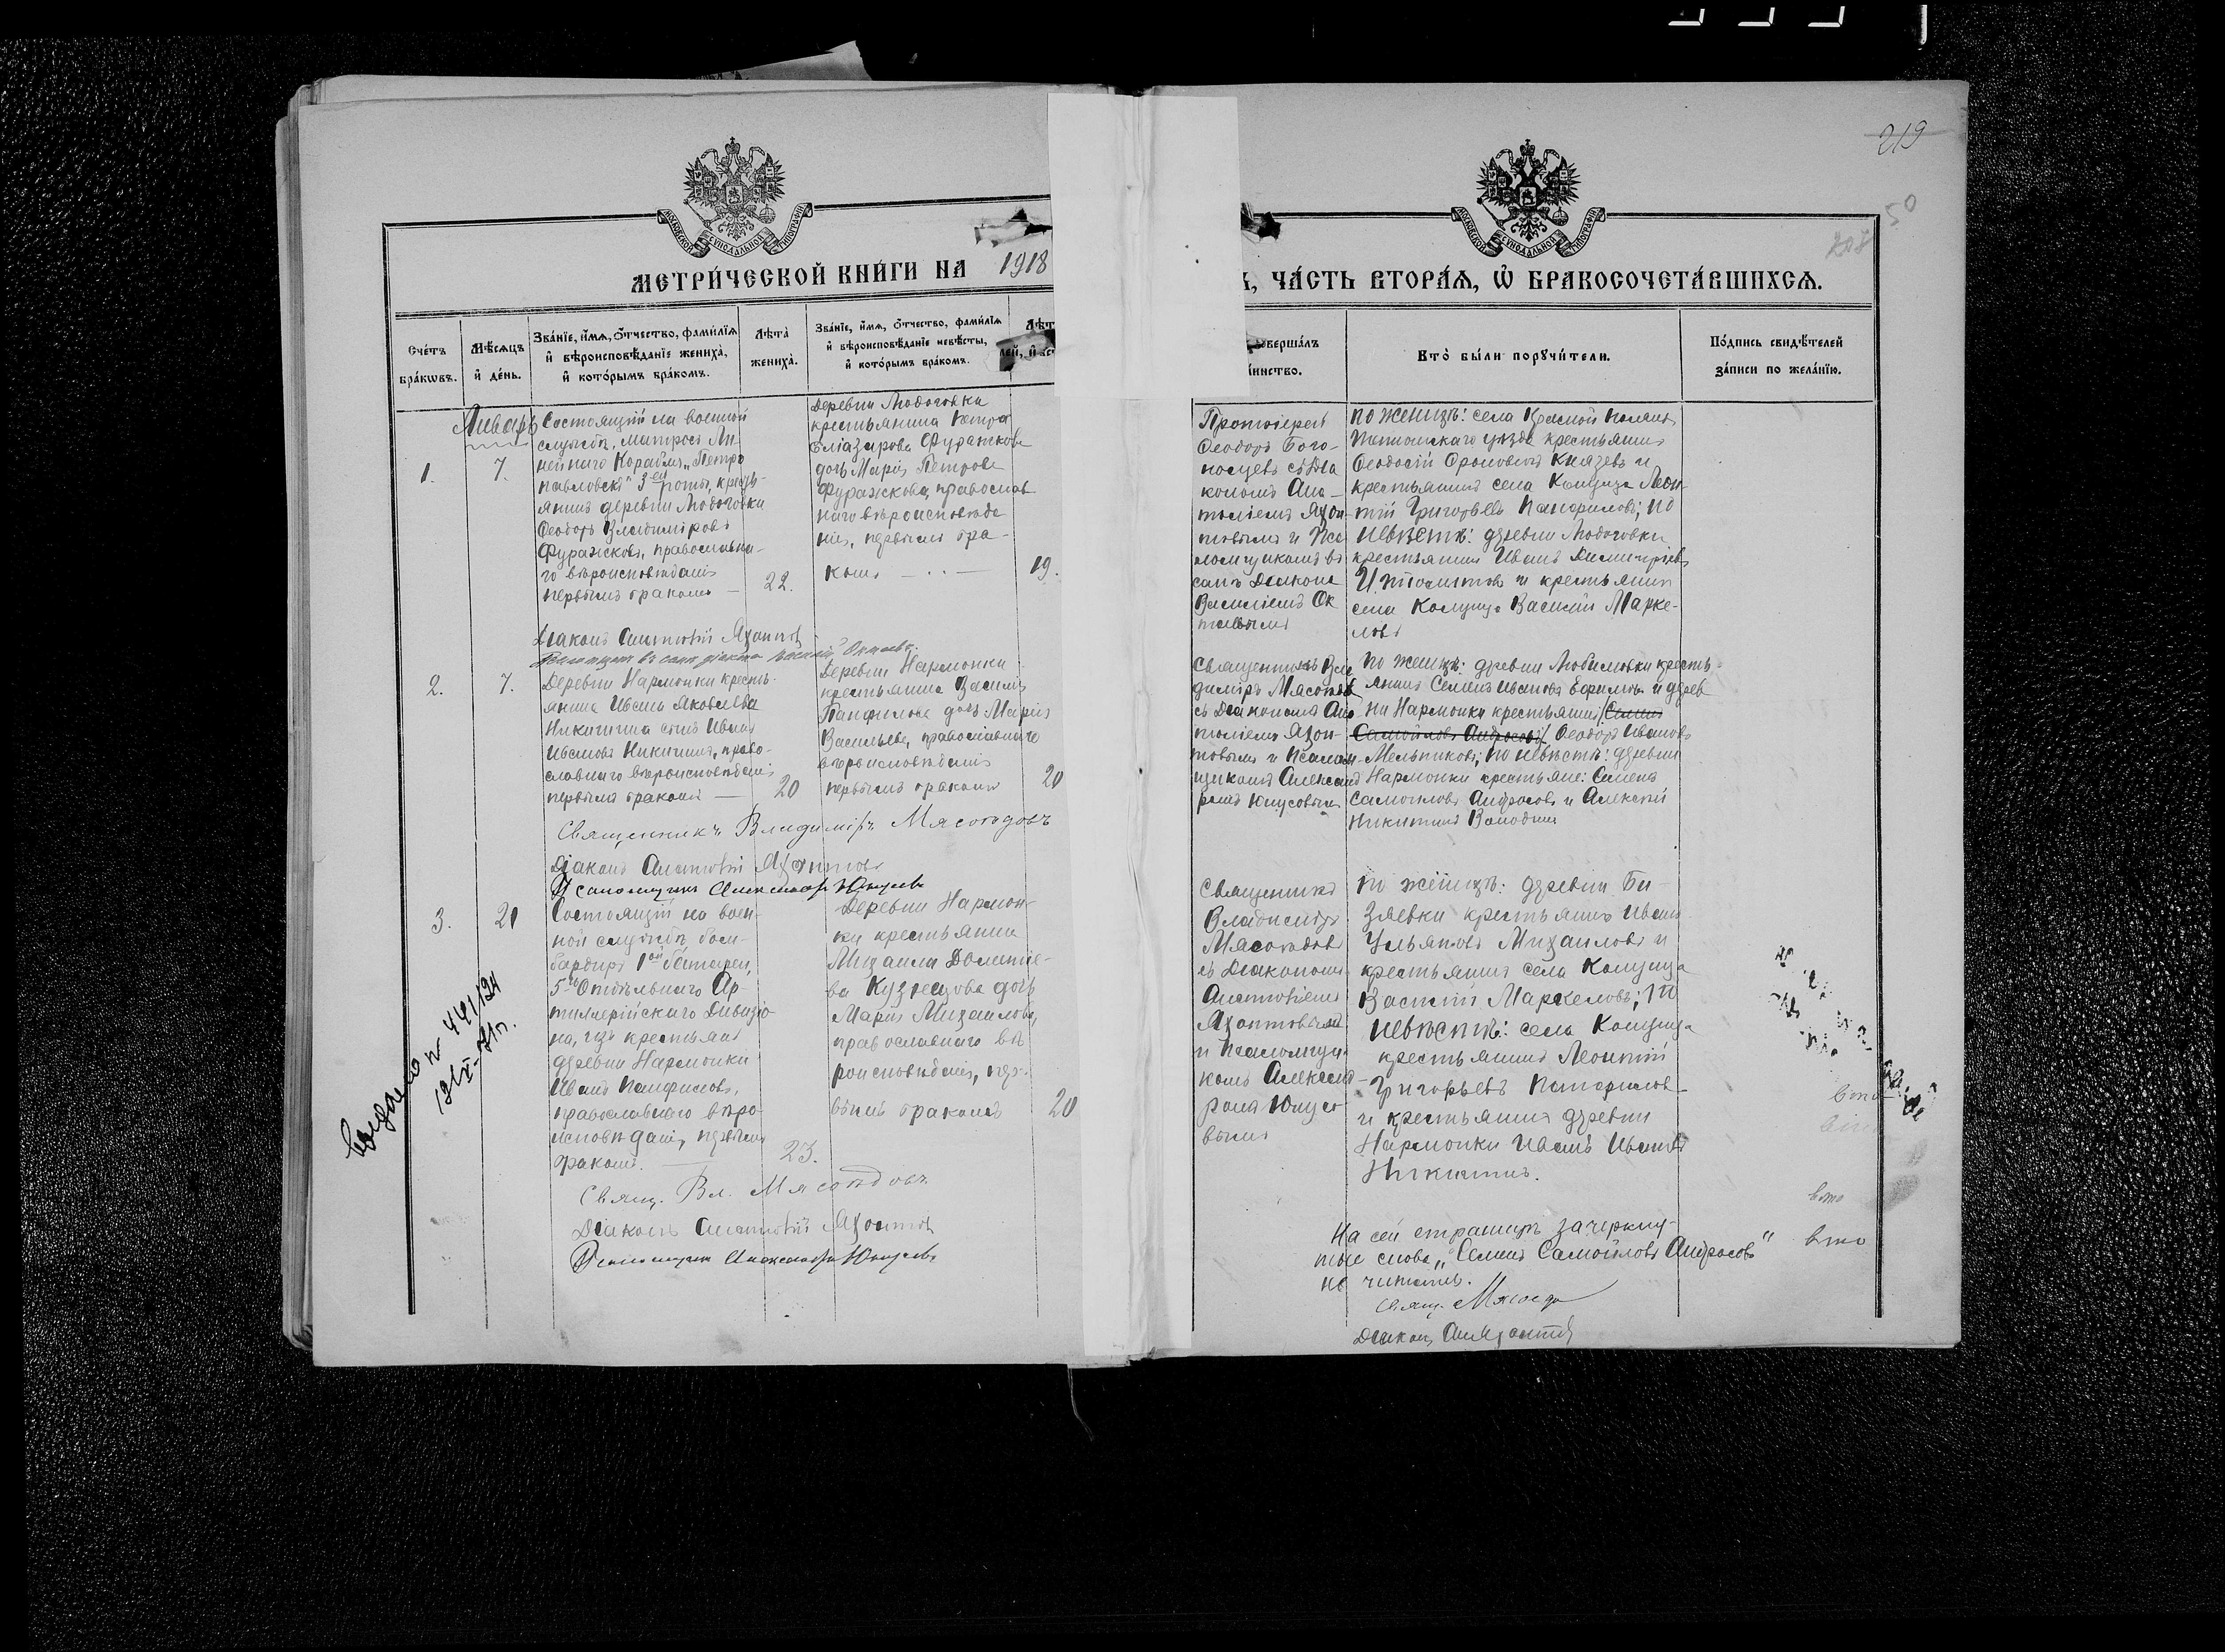 219
50
208
МОСКОВСКОЙ СѴНОДАЛЬНОЙ ТИПОГРАФІИ
МОСКОВСКОЙ СѴНОДАЛЬНОЙ ТИПОГРАФІИ
МЕТРИ́ЧЕСКОЙ КНИ́ГИ НА 1918
, ЧА́СТЬ ВТОРА́Я, Ѡ҆ БРАКОСОЧЕТА́ВШИХСЯ.
Сче́тъ
бра́кѡвъ.
Мѣ́сяцъ
и҆ де́нь.
Зва́нїе, и҆́мя, ѻ҆́тчество, фами́лїя
и҆ вѣроисповѣ́данїе жениха̀,
и҆ кото́рымъ бра́комъ.
Лѣта̀
жениха̀.
Зва́нїе, и҆́мя, ѻ҆́тчество, фами́лїя
и҆ вѣроисповѣ́данїе невѣ́сты,
и҆ кото́рымъ бра́комъ.
Лѣт
совершáлъ
таинство.
Кто̀ бы́ли порꙋчи́тели.
По́дпись свидѣ́телей
за́писи по жела́нїю.
Январь
1.
7.
Состоящій на военной
службѣ, матросъ Ли-
нейнаго Корабля „Петро
павловскъ" 3ей роты, кресть-
янинъ деревни Любоговки
Ѳеодоръ Владиміровъ
Фуражковъ, православна-
го вѣроисповѣданія
первымъ бракомъ —
22.
Деревни Любоговки
крестьянина Петра
Елiазарова Фуражкова
дочь Марія Петрова
Фуражкова, православ
наго вѣроисповѣда
нія, первымъ бра-
комъ —
19.
Протоіерей
Ѳеодоръ Бого-
носцевъ съ Діа
кономъ Ана-
толіемъ Яхон-
товымъ и Пса
ломщикомъ въ
санѣ Діакона
Василіемъ Ок
таевымъ
по женихѣ: села Красной Поляны
уѣзда крестьянинъ
Ѳеодосій Князевъ и
крестьянинъ села Леон-
тій Григорьевъ Панфиловъ; по
невѣстѣ: деревни Любоговки
крестьянинъ Иванъ Димитріевъ
и крестьянинъ
села Василій Марке-
ловъ
Діаконъ Анатолій Яхонтовъ
Псаломщикъ въ санѣ діакона Василій Октаевъ.
2.
7.
Деревни Нармонки кресть-
янина Ивана Яковлева
Никитина сынъ Иванъ
Ивановъ Никитинъ, право-
славнаго вѣроисповѣданія
первымъ бракомъ —
20
Деревни Нармонки
крестьянина Василія
Панфилова дочь Марія
Васильева, православнаго
вѣроисповѣданія
первымъ бракомъ
20
Священникъ Вла
диміръ Мясоѣдовъ
съ Діакономъ Ана
толіемъ Яхон-
товымъ и Псалом-
щикомъ Александ
ромъ Юнусовымъ
по женихѣ: деревни Любимовки кресть-
янинъ Семенъ Ивановъ Ефимовъ и дерев
ни Нармонки крестьянинъ (Семенъ
Самойловъ Андросовъ) Ѳеодоръ Ивановъ
Мельниковъ; по невѣстѣ: деревни
Нармонки крестьяне: Семенъ
Самойловъ Андросовъ и Алексѣй
Никитинъ Володинъ
Священникъ Владиміръ Мясоѣдовъ
Діаконъ Анатолій Яхонтовъ
Псаломщикъ Александръ Юнусовъ
3.
21
Состоящій на воен-
ной службѣ, бом-
бардиръ 1ой батареи,
5го Отдѣльнаго Ар-
тиллерійскаго Дивизіо-
на, изъ крестьянъ
деревни Нармонки
Иванъ Панфиловъ,
православнаго вѣро-
исповѣданія, первымъ
бракомъ. —
23.
Деревни Нармон-
ки крестьянина
Михаила Доментіе-
ва Кузнецова дочь
Марія Михаилова,
православнаго вѣ
роисповѣданія, пер-
вымъ бракомъ
20
Священникъ
Владиміръ
Мясоѣдовъ
съ Діакономъ
Анатоліемъ
Яхонтовымъ
и Псаломщи-
комъ Александ-
ромъ Юнусо-
вымъ
по женихѣ: деревни Би-
зяевки крестьянинъ Иванъ
Ульяновъ Михаиловъ и
крестьянинъ села
Василій Маркеловъ; по
невѣстѣ: села
крестьянинъ Леонтій
Григорьевъ Панфиловъ
и крестьянинъ деревни
Нармонки Иванъ Ивановъ
Никитинъ.
Свящ. Вл. Мясоѣдовъ
Діаконъ Анатолій Яхонтовъ
Псаломщикъ Александръ Юнусовъ
На сей страницѣ зачеркну-
тые слова „Семенъ Самойловъ Андросовъ"
не читать.
Свящ. Мясоѣдо
Діаконъ Ан. Яхонтов